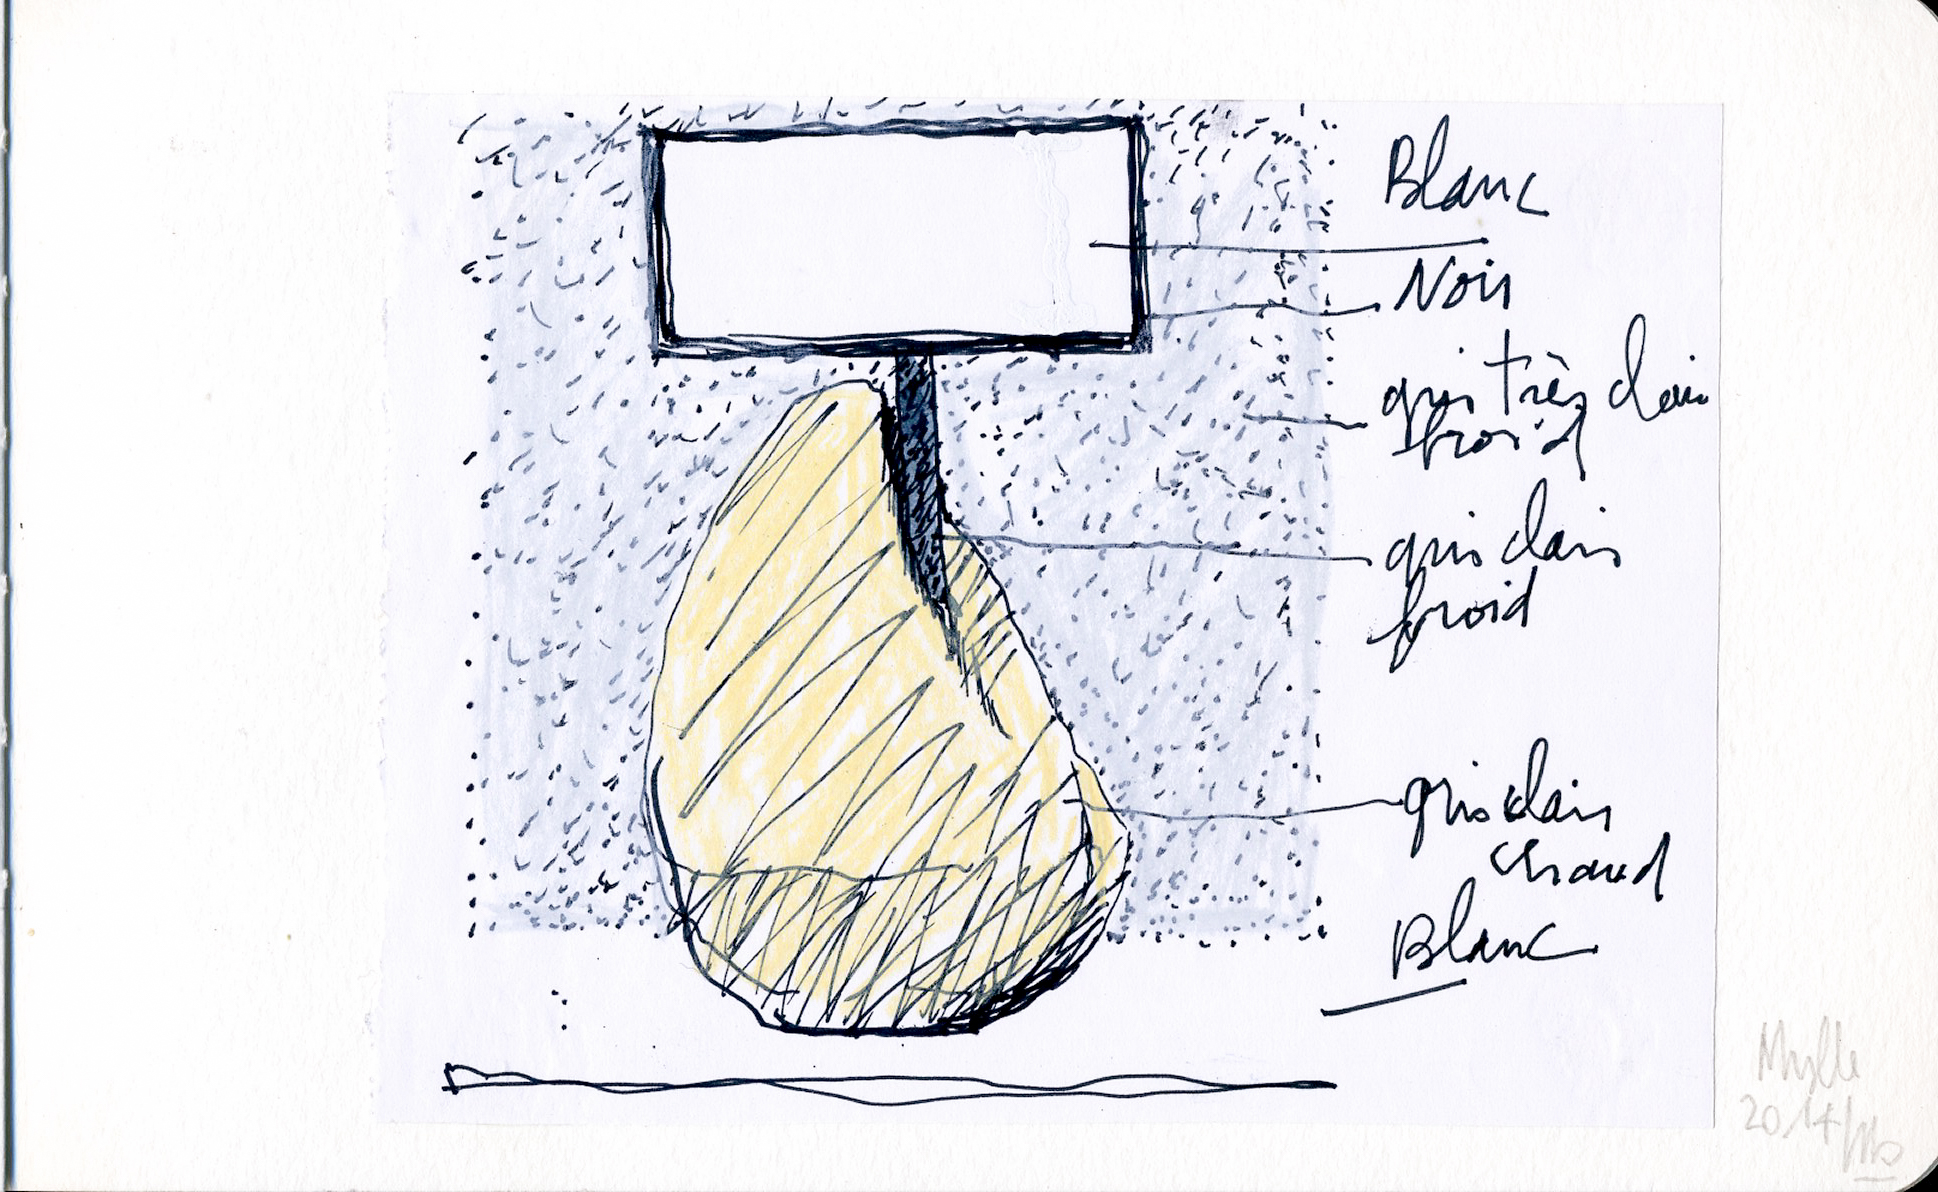 Blanc
Noir
gris très clair
froid
gris clair
froid
gris clair
chaud
Blanc
2014